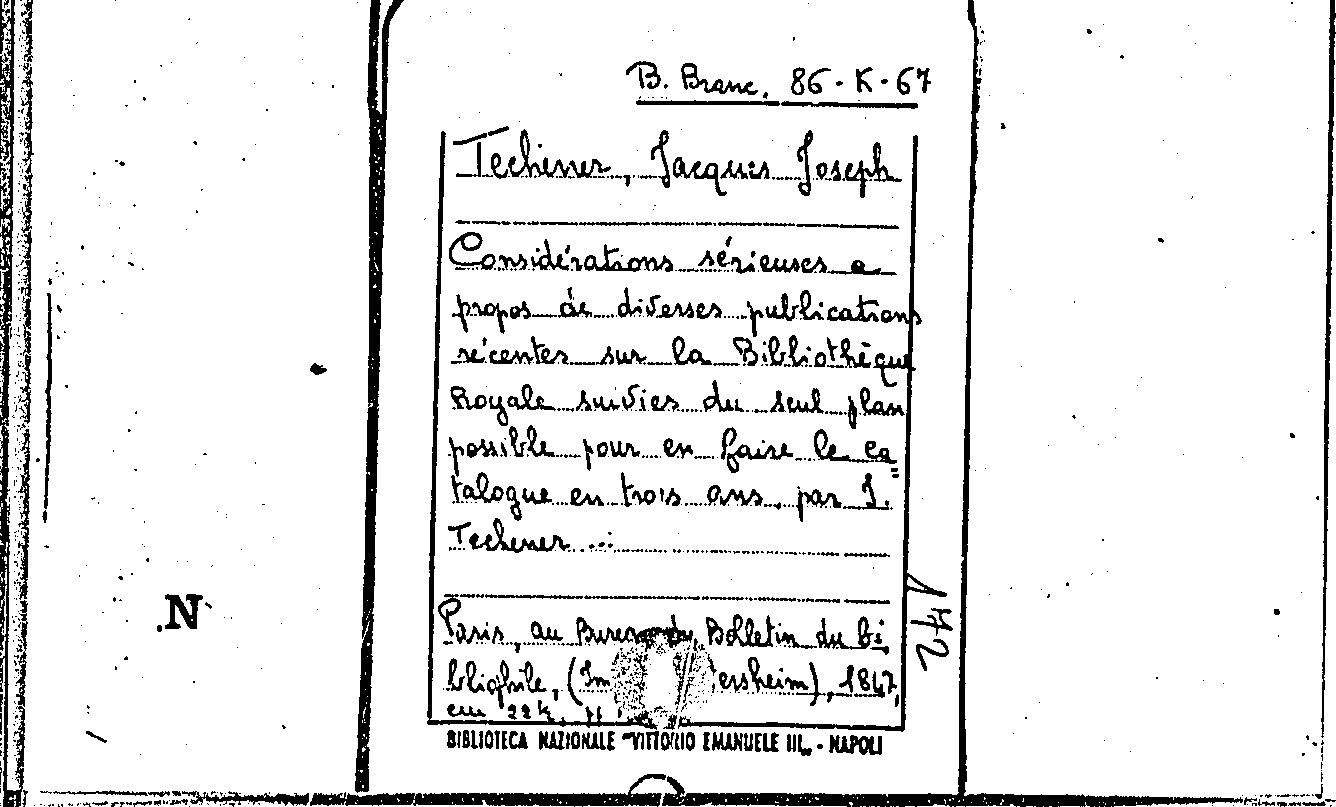 B. Branc. 86-K-67
Techener, Jacques Joseph
Considérations sérieuses a
propos de diverses publications
récentes sur la Bibliothèque
Royale suivies du seul plan
possible pour en faire le ca=
talogue en trois ans, par J.
Techener ...
172
Paris, au Bureau du Bolletin du bi
bliophile, (Im ersheim), 1847,
cm 22½,
BIBLIOTECA NAZIONALE "VITTORIO EMANUELE III„ - NAPOLI
N